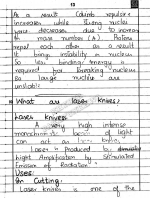 13
As a result Coulomb repulsive
increases while strong nuclear
force decreases due to increase
in mass number (A) Protons
repel each other as a result
it bring instability in nucleus
So less binding energy is
required for breaking nucleus
So large nuclei are
unstable
What are laser knives?
Lasers knives:
A very high intense
monochromatic of light
can act as laser knife.
Laser is produced by
Light Amplification by Stimulated
Emission of Radiation"
Uses:
In Cutting:
Laser knives is one of the